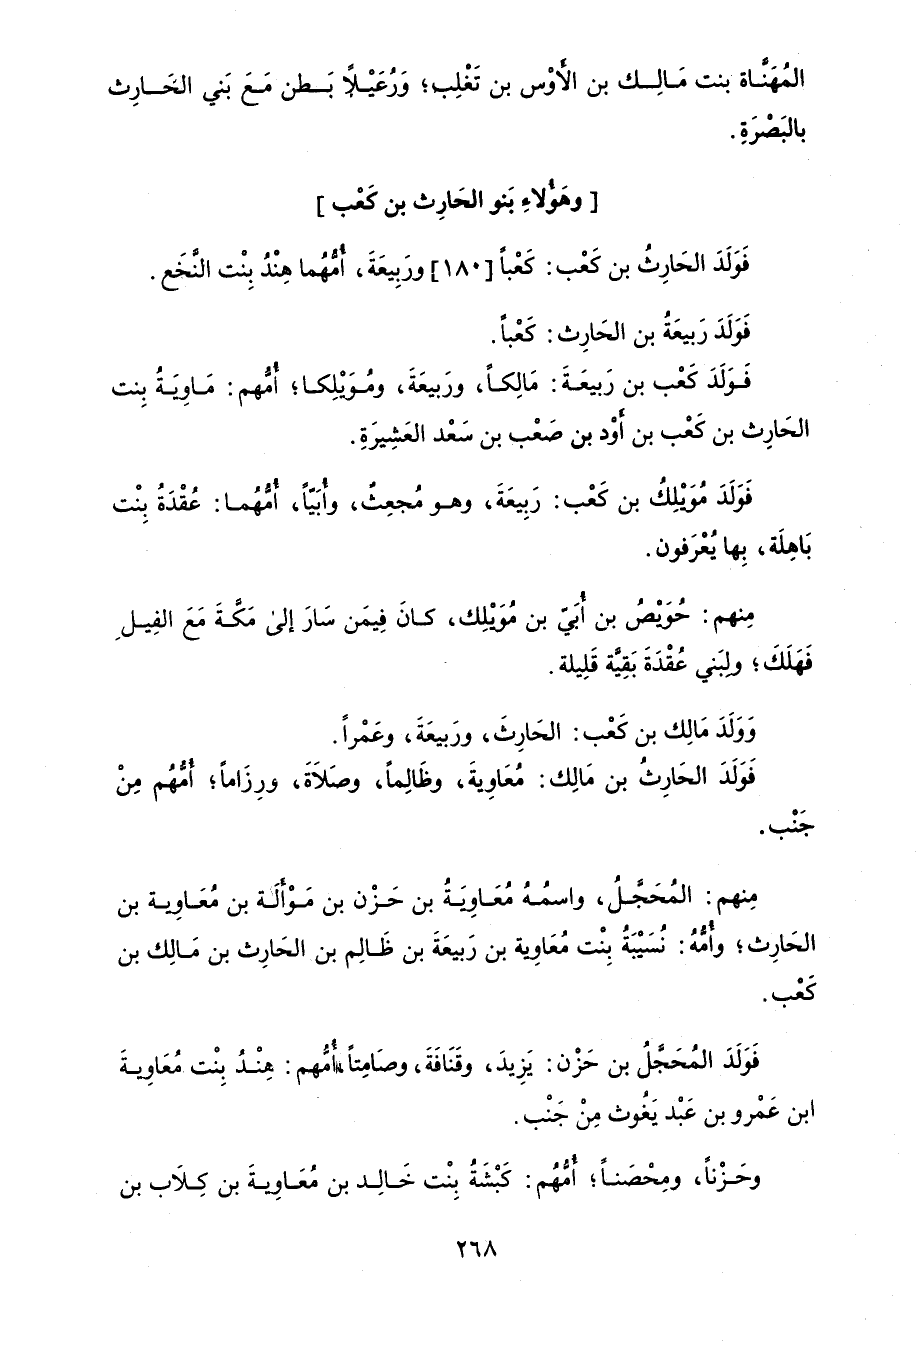 المُهَنَّاة بنت مَالِك بن الأَوْس بن تَغْلِب؛ وَرُعَيْلًا بَطن مَعَ بَني الحَارِث
بالبَصْرَةِ.
[ وهَؤُلاءِ بَنو الحَارِث بن كَعْب ]
فَوَلَدَ الحَارِثُ بن كَعْب: كَعْباً [١٨٠] ورَبِيعَةَ، أُمُّهُما هِنْدُ بِنْت النَّخَع.
فَوَلَدَ رَبِيعَةُ بن الحَارِث: كَعْباً.
فَوَلَدَ كَعْب بن رَبِيعَةَ: مَالِكاً، ورَبِيعَةَ، ومُوَيْلِكا؛ أُمُّهم: مَاوِيَةُ بِنت
الحَارِث بن كَعْب بن أَوْد بن صَعْب بن سَعْد العَشِيرَةِ.
فَوَلَدَ مُوَيْلِكُ بن كَعْب: رَبِيعَةَ، وهو مُجعِثٌ، وأُبَيّاً، أُمُّهُما: عُقْدَةُ بِنْت
بَاهِلَة، بِها يُعْرَفون.
مِنهم: حُوَيْصُ بن أُبَيّ بن مُوَيْلِك، كانَ فِيمَن سَارَ إلىٰ مَكَّةَ مَعَ الفِيلِ
فَهَلَكَ؛ ولِبَني عُقْدَةَ بَقِيَّة قَلِيلة.
وَوَلَدَ مَالِك بن كَعْب: الحَارِثَ، ورَبِيعَةَ، وعَمْراً.
فَوَلَدَ الحَارِثُ بن مَالِك: مُعَاوِيةَ، وظَالِماً، وصَلَاةَ، ورِزَاماً؛ أُمُّهُم مِنْ
جَنْب.
مِنهم: المُحَجَّلُ، واسمُهُ مُعَاوِيَةُ بن حَزْن بن مَوْأَلَة بن مُعَاوِية بن
الحَارِث؛ وأُمُّهُ: نُسَيْبَةُ بِنْت مُعَاوِية بن رَبِيعَةَ بن ظَالِم بن الحَارِث بن مَالِك بن
كَعْب.
فَوَلَدَ المُحَجَّلُ بن حَزْن: يَزِيدَ، وقَنَافَةَ، وصَامِتاً، أُمُّهم: هِنْدُ بِنْت مُعَاوِيةَ
ابن عَمْرو بن عَبْد يَغُوث مِنْ جَنْب.
وحَزْناً، ومِحْصَناً؛ أُمُّهُم: كَبْشَةُ بِنْت خَالِد بن مُعَاوِيةَ بن كِلَاب بن
٢٦٨